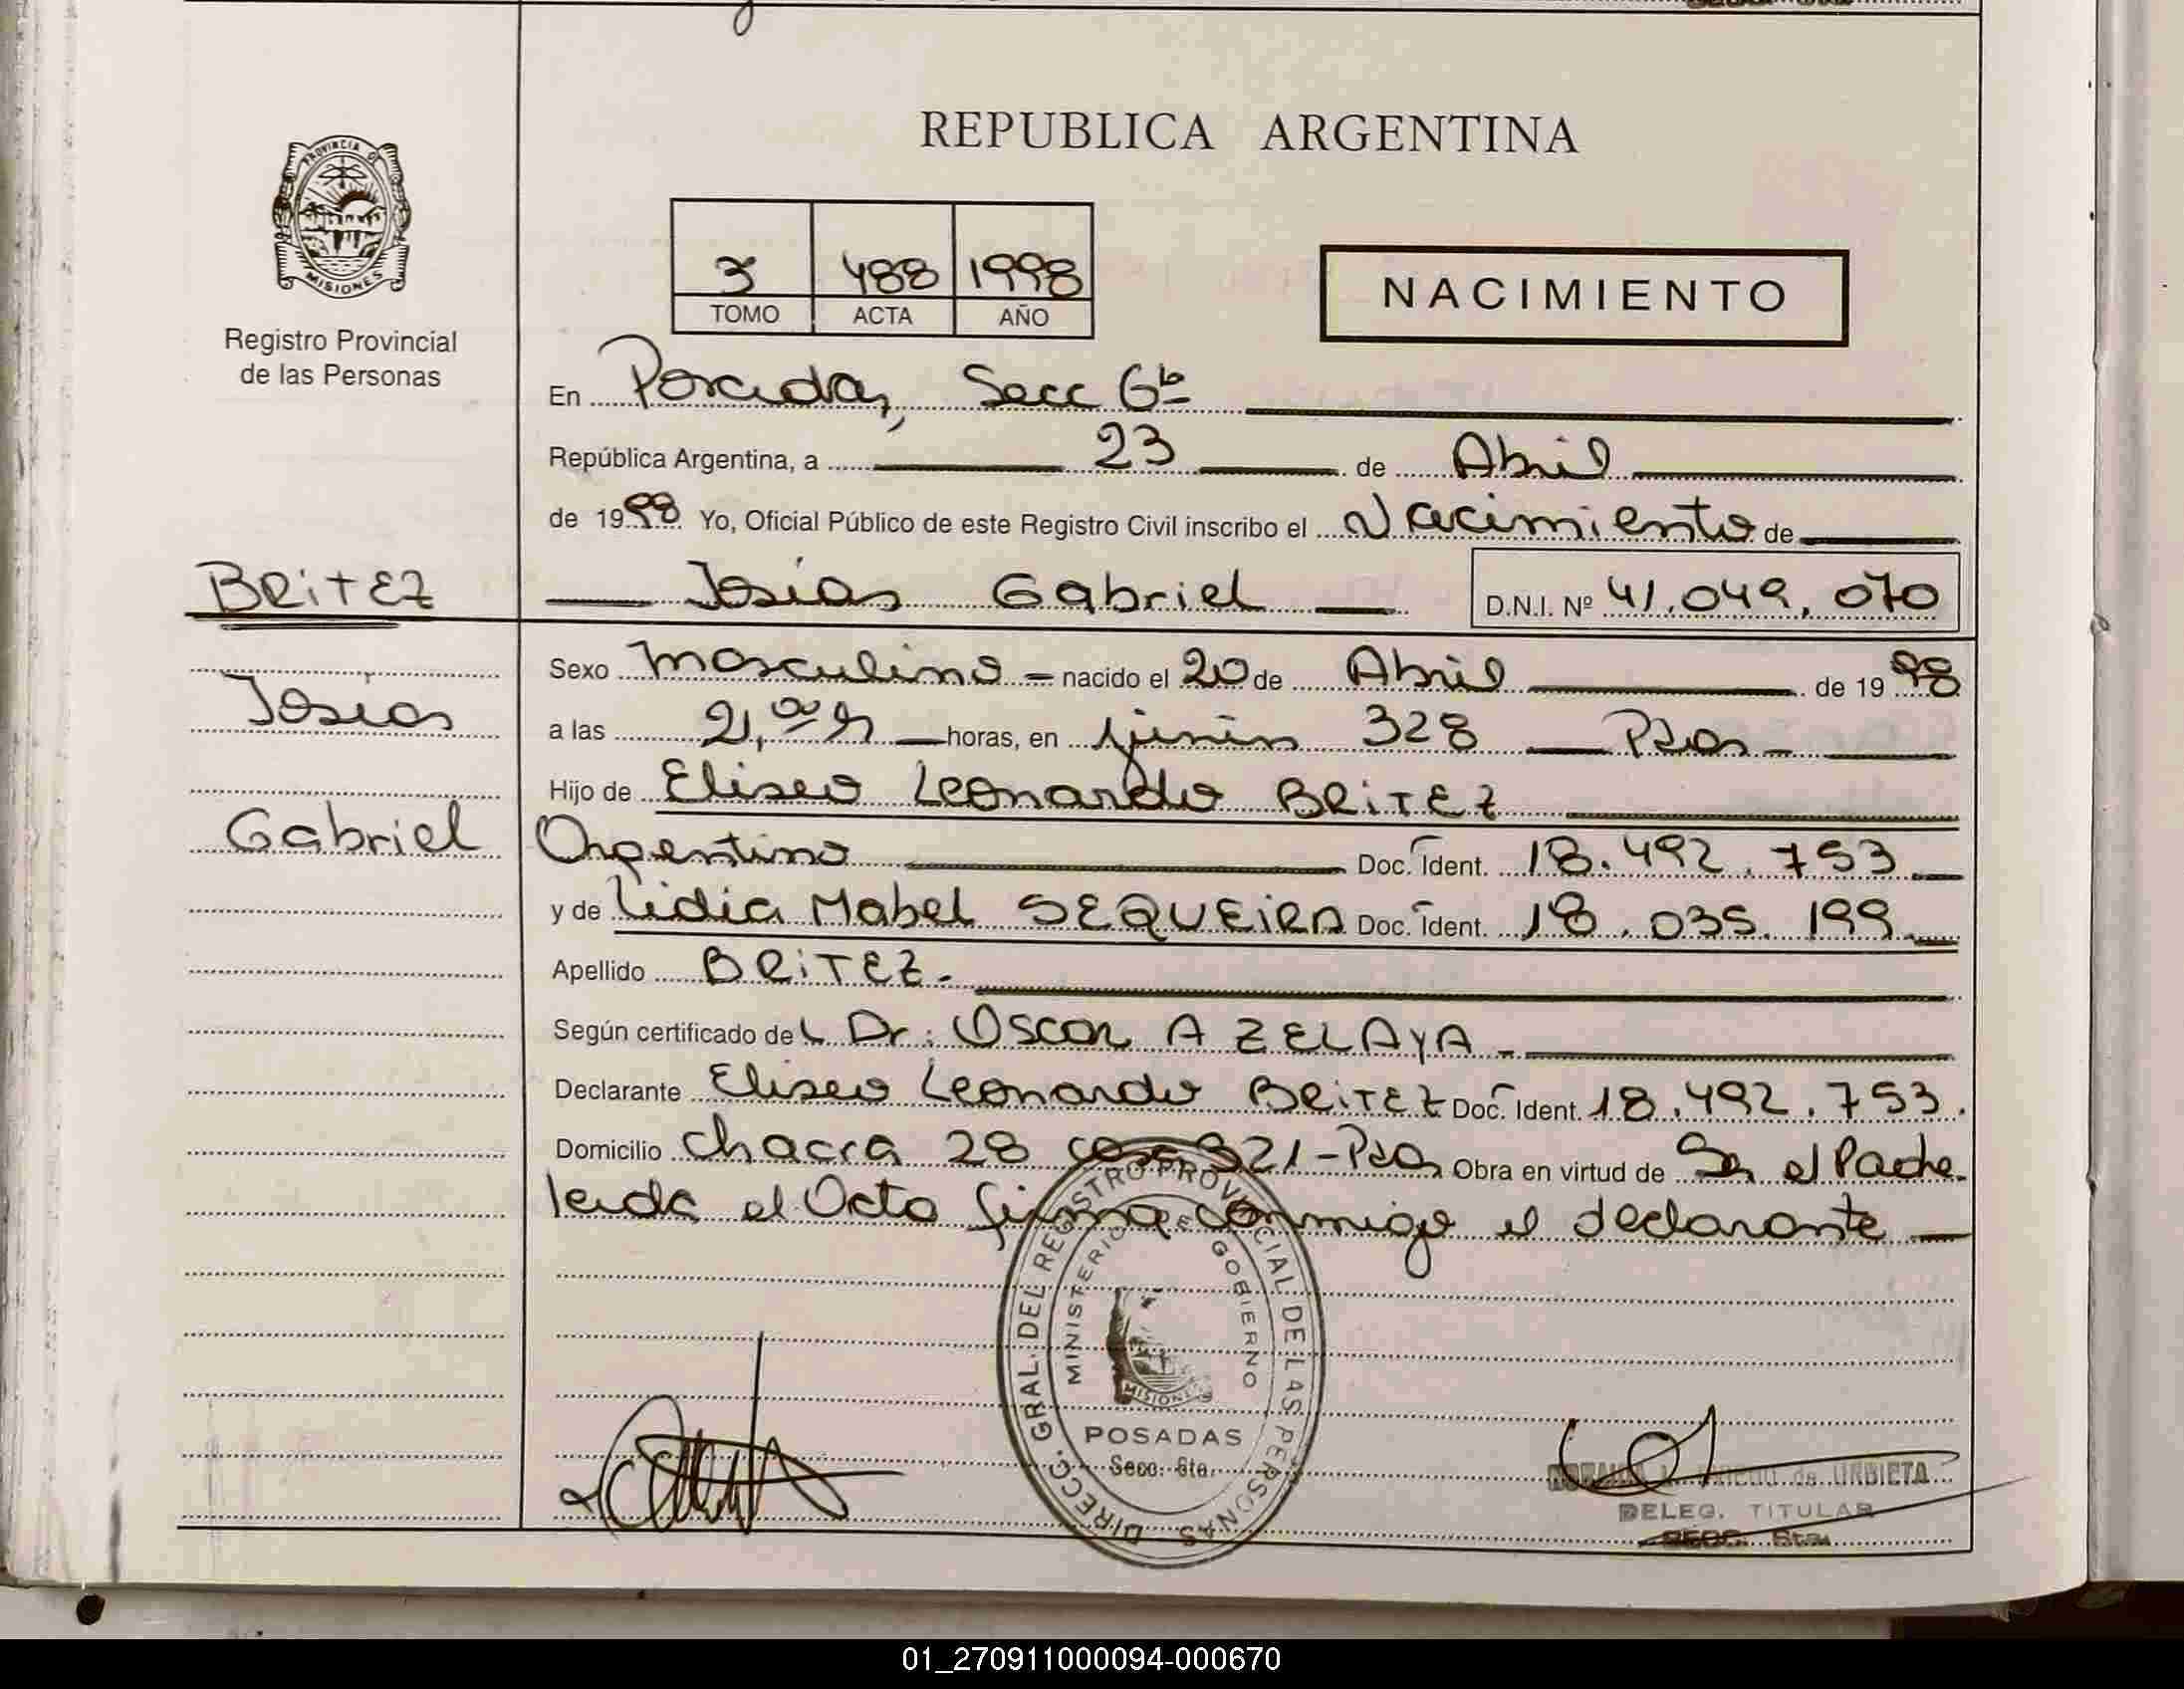 REPUBLICA ARGENTINA
PROVINCIA DE
MISIONES
Registro Provincial
de las Personas
3 488 1998
TOMO ACTA AÑO
NACIMIENTO
En Posadas, Secc 6ta
República Argentina, a 23 de Abril
de 1998 Yo, Oficial Público de este Registro Civil inscribo el Nacimiento de
BRITEZ
Josías Gabriel D.N.I. Nº 41.049.070
Sexo masculino = nacido el 20 de Abril de 1998
Josias
a las 21,00 h horas, en Junín 328 Pdas -
Hijo de Eliseo Leonardo BRITEZ
Gabriel
Argentino Doc. Ident. 18.492.753
y de Lidia Mabel SEQUEIRA Doc. Ident. 18.035.199
Apellido BRITEZ.-
Según certificado del Dr: Oscar A ZELAYA -
Declarante Eliseo Leonardo BRITEZ Doc. Ident. 18.492.753.
Domicilio Chacra 28 casa 321-Pdas Obra en virtud de Ser el Padre.
leida el Acta firma conmigo el declarante
DIRECC. GRAL. DEL REGISTRO PROVINCIAL DE LAS PERSONAS
MINISTERIO DE GOBIERNO
MISIONES
POSADAS
Secc. 6ta.
de URBIETA
DELEG. TITULAR
SECC. 6ta.
01_270911000094-000670